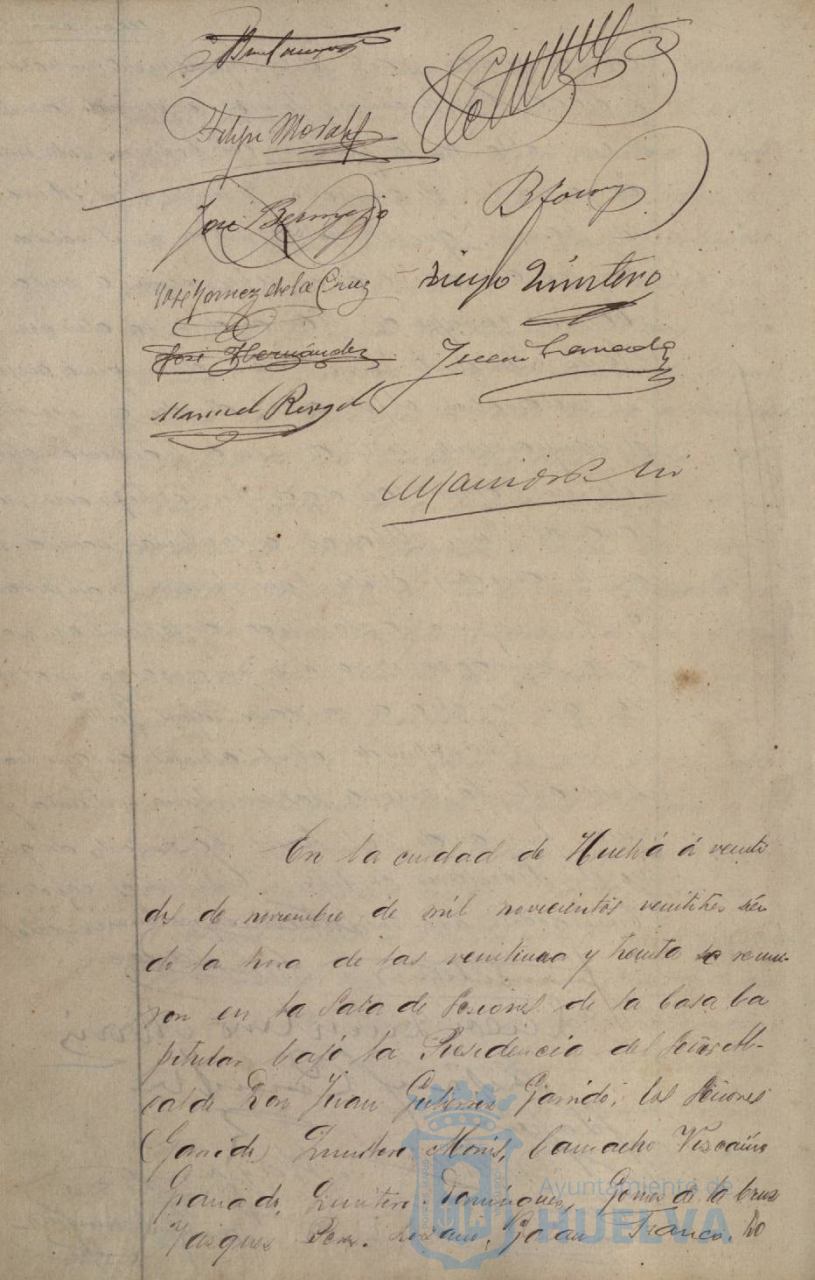 Felipe Morales
José Bermejo
José Gomez de la Cruz
Diego Quintero
José Hernández
Manuel Rengel
En la ciudad de Huelva á veinti
dos de noviembre de mil novecientos veintitres sien
do la hora de las veintiuna y treinta se reunie-
ron en la Sala de Sesiones de la Casa Ca
pitular, bajo la Presidencia del Señor Al-
calde Don Juan Gutierrez Garrido, los Señores
(Garrido) Quintero Moris, Camacho Viscaino
Granado, Quintero Dominguez, Gomez de la Cruz
Vasquez Perez, Lozano, Galan Franco,
Ayuntamiento de
HUELVA